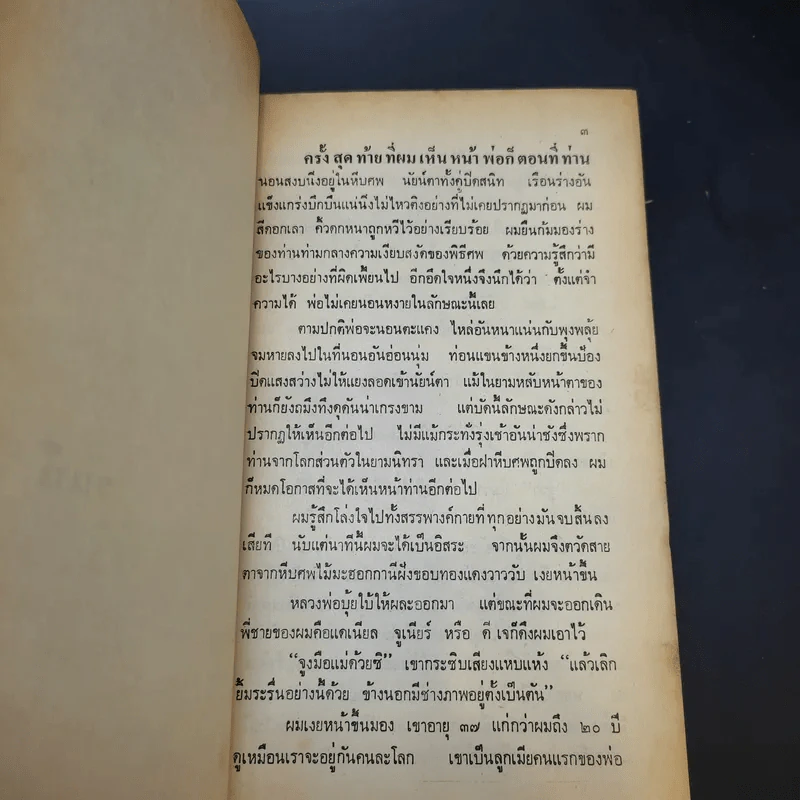 ๓
ครั้ง สุด ท้าย ที่ผม เห็น หน้า พ่อก็ ตอนที่ ท่าน
นอนสงบนิ่งอยู่ในหีบศพ นัยน์ตาทั้งคู่ปิดสนิท เรือนร่างอัน
แข็งแกร่งบึกบึนแน่นิ่งไม่ไหวติงอย่างที่ไม่เคยปรากฏมาก่อน ผม
สีดอกเลา คิ้วดกหนาถูกหวีไว้อย่างเรียบร้อย ผมยืนก้มมองร่าง
ของท่านท่ามกลางความเงียบสงัดของพิธีศพ ด้วยความรู้สึกว่ามี
อะไรบางอย่างที่ผิดเพี้ยนไป อีกอึดใจหนึ่งจึงนึกได้ว่า ตั้งแต่จำ
ความได้ พ่อไม่เคยนอนหงายในลักษณะนี้เลย
ตามปกติพ่อจะนอนตะแคง ไหล่อันหนาแน่นกับพุงพลุ้ย
จมหายลงไปในที่นอนอันอ่อนนุ่ม ท่อนแขนข้างหนึ่งยกขึ้นป้อง
ปิดแสงสว่างไม่ให้แยงลอดเข้านัยน์ตา แม้ในยามหลับหน้าตาของ
ท่านก็ยังถมึงทึงดุดันน่าเกรงขาม แต่บัดนี้ลักษณะดังกล่าวไม่
ปรากฏให้เห็นอีกต่อไป ไม่มีแม้กระทั่งรุ่งเช้าอันน่าชังซึ่งพราก
ท่านจากโลกส่วนตัวในยามนิทรา และเมื่อฝาหีบศพถูกปิดลง ผม
ก็หมดโอกาสที่จะได้เห็นหน้าท่านอีกต่อไป
ผมรู้สึกโล่งใจไปทั้งสรรพางค์กายที่ทุกอย่างมันจบสิ้นลง
เสียที นับแต่นาทีนี้ผมจะได้เป็นอิสระ จากนั้นผมจึงตวัดสาย
ตาจากหีบศพไม้มะฮอกกานีฝังขอบทองแดงวาววับ เงยหน้าขึ้น
หลวงพ่อบุ้ยใบ้ให้ผละออกมา แต่ขณะที่ผมจะออกเดิน
พี่ชายของผมคือแดเนียล จูเนียร์ หรือ ดี เจก็ดึงผมเอาไว้
“จูงมือแม่ด้วยซิ” เขากระซิบเสียงแหบแห้ง “แล้วเลิก
ยิ้มระรื่นอย่างนี้ด้วย ข้างนอกมีช่างภาพอยู่ตั้งเป็นตัน”
ผมเงยหน้าขึ้นมอง เขาอายุ ๓๗ แก่กว่าผมถึง ๒๐ ปี
ดูเหมือนเราจะอยู่กันคนละโลก เขาเป็นลูกเมียคนแรกของพ่อ